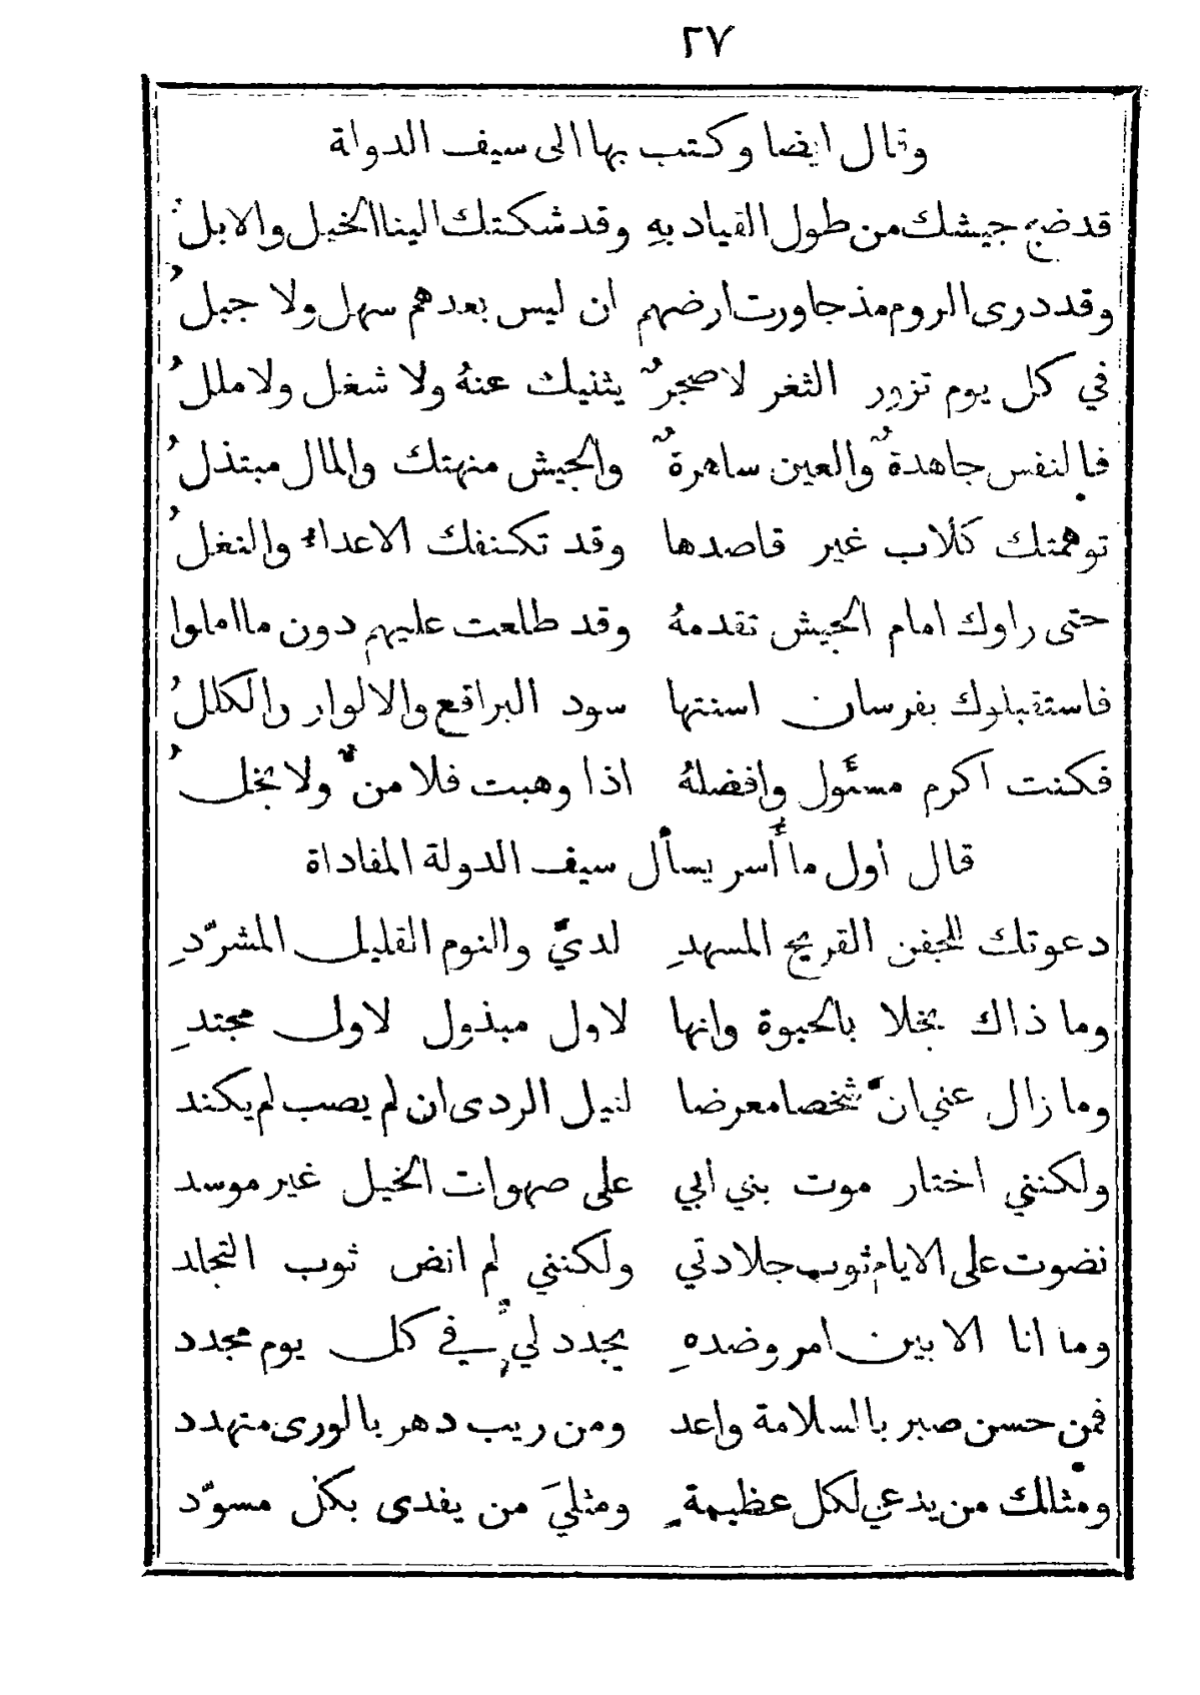 ٢٧
وقال ايضا وكتب بها الى سيف الدولة
قد ضج جيشك من طول القياد بهِ وقد شكتك الينا الخيل والابلُ
وقد درى الروم مذ جاورت ارضهم ان ليس بعدهم سهل ولا جبلُ
في كل يوم تزور الثغر لا ضجرٌ يثنيك عنهُ ولا شغل ولا مللُ
فالنفس جاهدةٌ والعين ساهرةٌ والجيش منهتك والمال مبتذلُ
توهمتك كلاب غير قاصدها وقد تكنفك الاعداء والنغلُ
حتى راوك امام الجيش تقدمهُ وقد طلعت عليهم دون ما املوا
فاستقبلوك بفرسان اسنتها سود البراقع والالوار والكللُ
فكنت اكرم مسئول وافضلهُ اذا وهبت فلا منٌّ ولا بخلُ
قال أول ما أُسر يسأل سيف الدولة المفاداة
دعوتك للجفن القريح المسهدِ لديَّ والنوم القليل المشرّدِ
وما ذاك بخلا بالحيوة وانها لاول مبذول لاول مجتدِ
وما زال عني انَّ شخصا معرضا لنيل الردى ان لم يصب لم يكند
ولكنني اختار موت بني ابي على صهوات الخيل غير موسد
نضوت على الايام ثوب جلادتي ولكنني لم انض ثوب التجلد
وما انا الا بين امر وضدهِ يجدد لي في كل يوم مجدد
فمن حسن صبر بالسلامة واعد ومن ريب دهر بالورى متهدد
ومثلك من يدعي لكل عظيمةٍ ومثليَ من يفدى بكل مسوّد